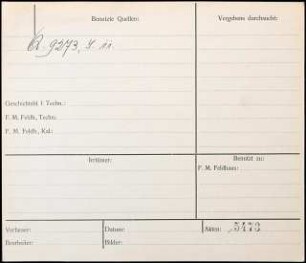 Benutzte Quellen:
Vergebens durchsucht:
A. 9273,
Geschichtsbl. f. Techn.:
F. M. Feldh., Techn.
F. M. Feldh., Kal.:
Irrtümer:
Benützt zu:
F. M. Feldhaus:
Verfasser:
Datum:
Akten: 5473
Bearbeiter:
Bilder: